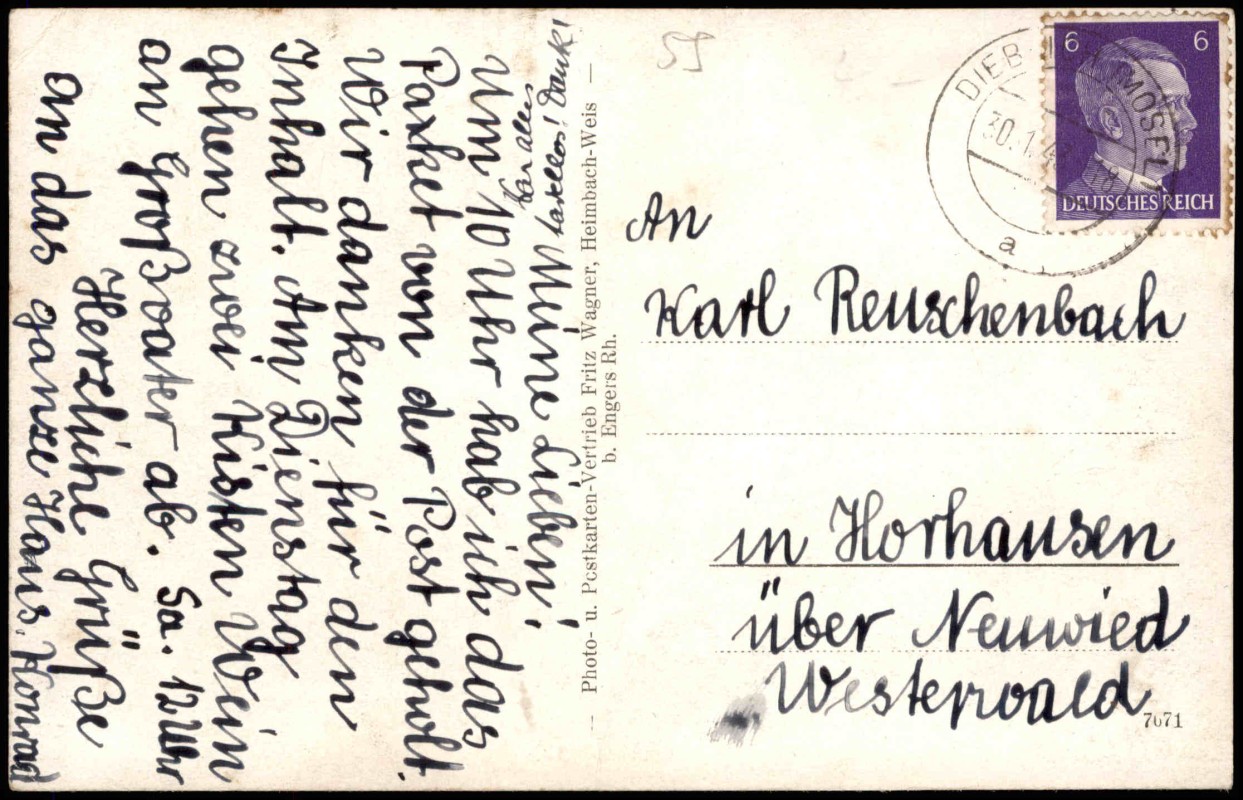 Meine Lieben!
Um 10 Uhr hab ich das
Paxket von der Post geholt.
Wir danken für den
Inhalt. Am Dienstag
gehen zwei Kisten Wein
an Großvater ab. Sa. 12 Uhr
Herzliche Grüße
an das ganze Haus. Konrad
War alles
tadellos! Dank!
— Photo- u. Postkarten-Vertrieb Fritz Wagner, Heimbach-Weis —
b. Engers Rh.
55
6 6
DEUTSCHES REICH
(MOSEL)
30.1.
a
An
Karl Reuschenbach
in Horhausen
über Neuwied
Westerwald
7671